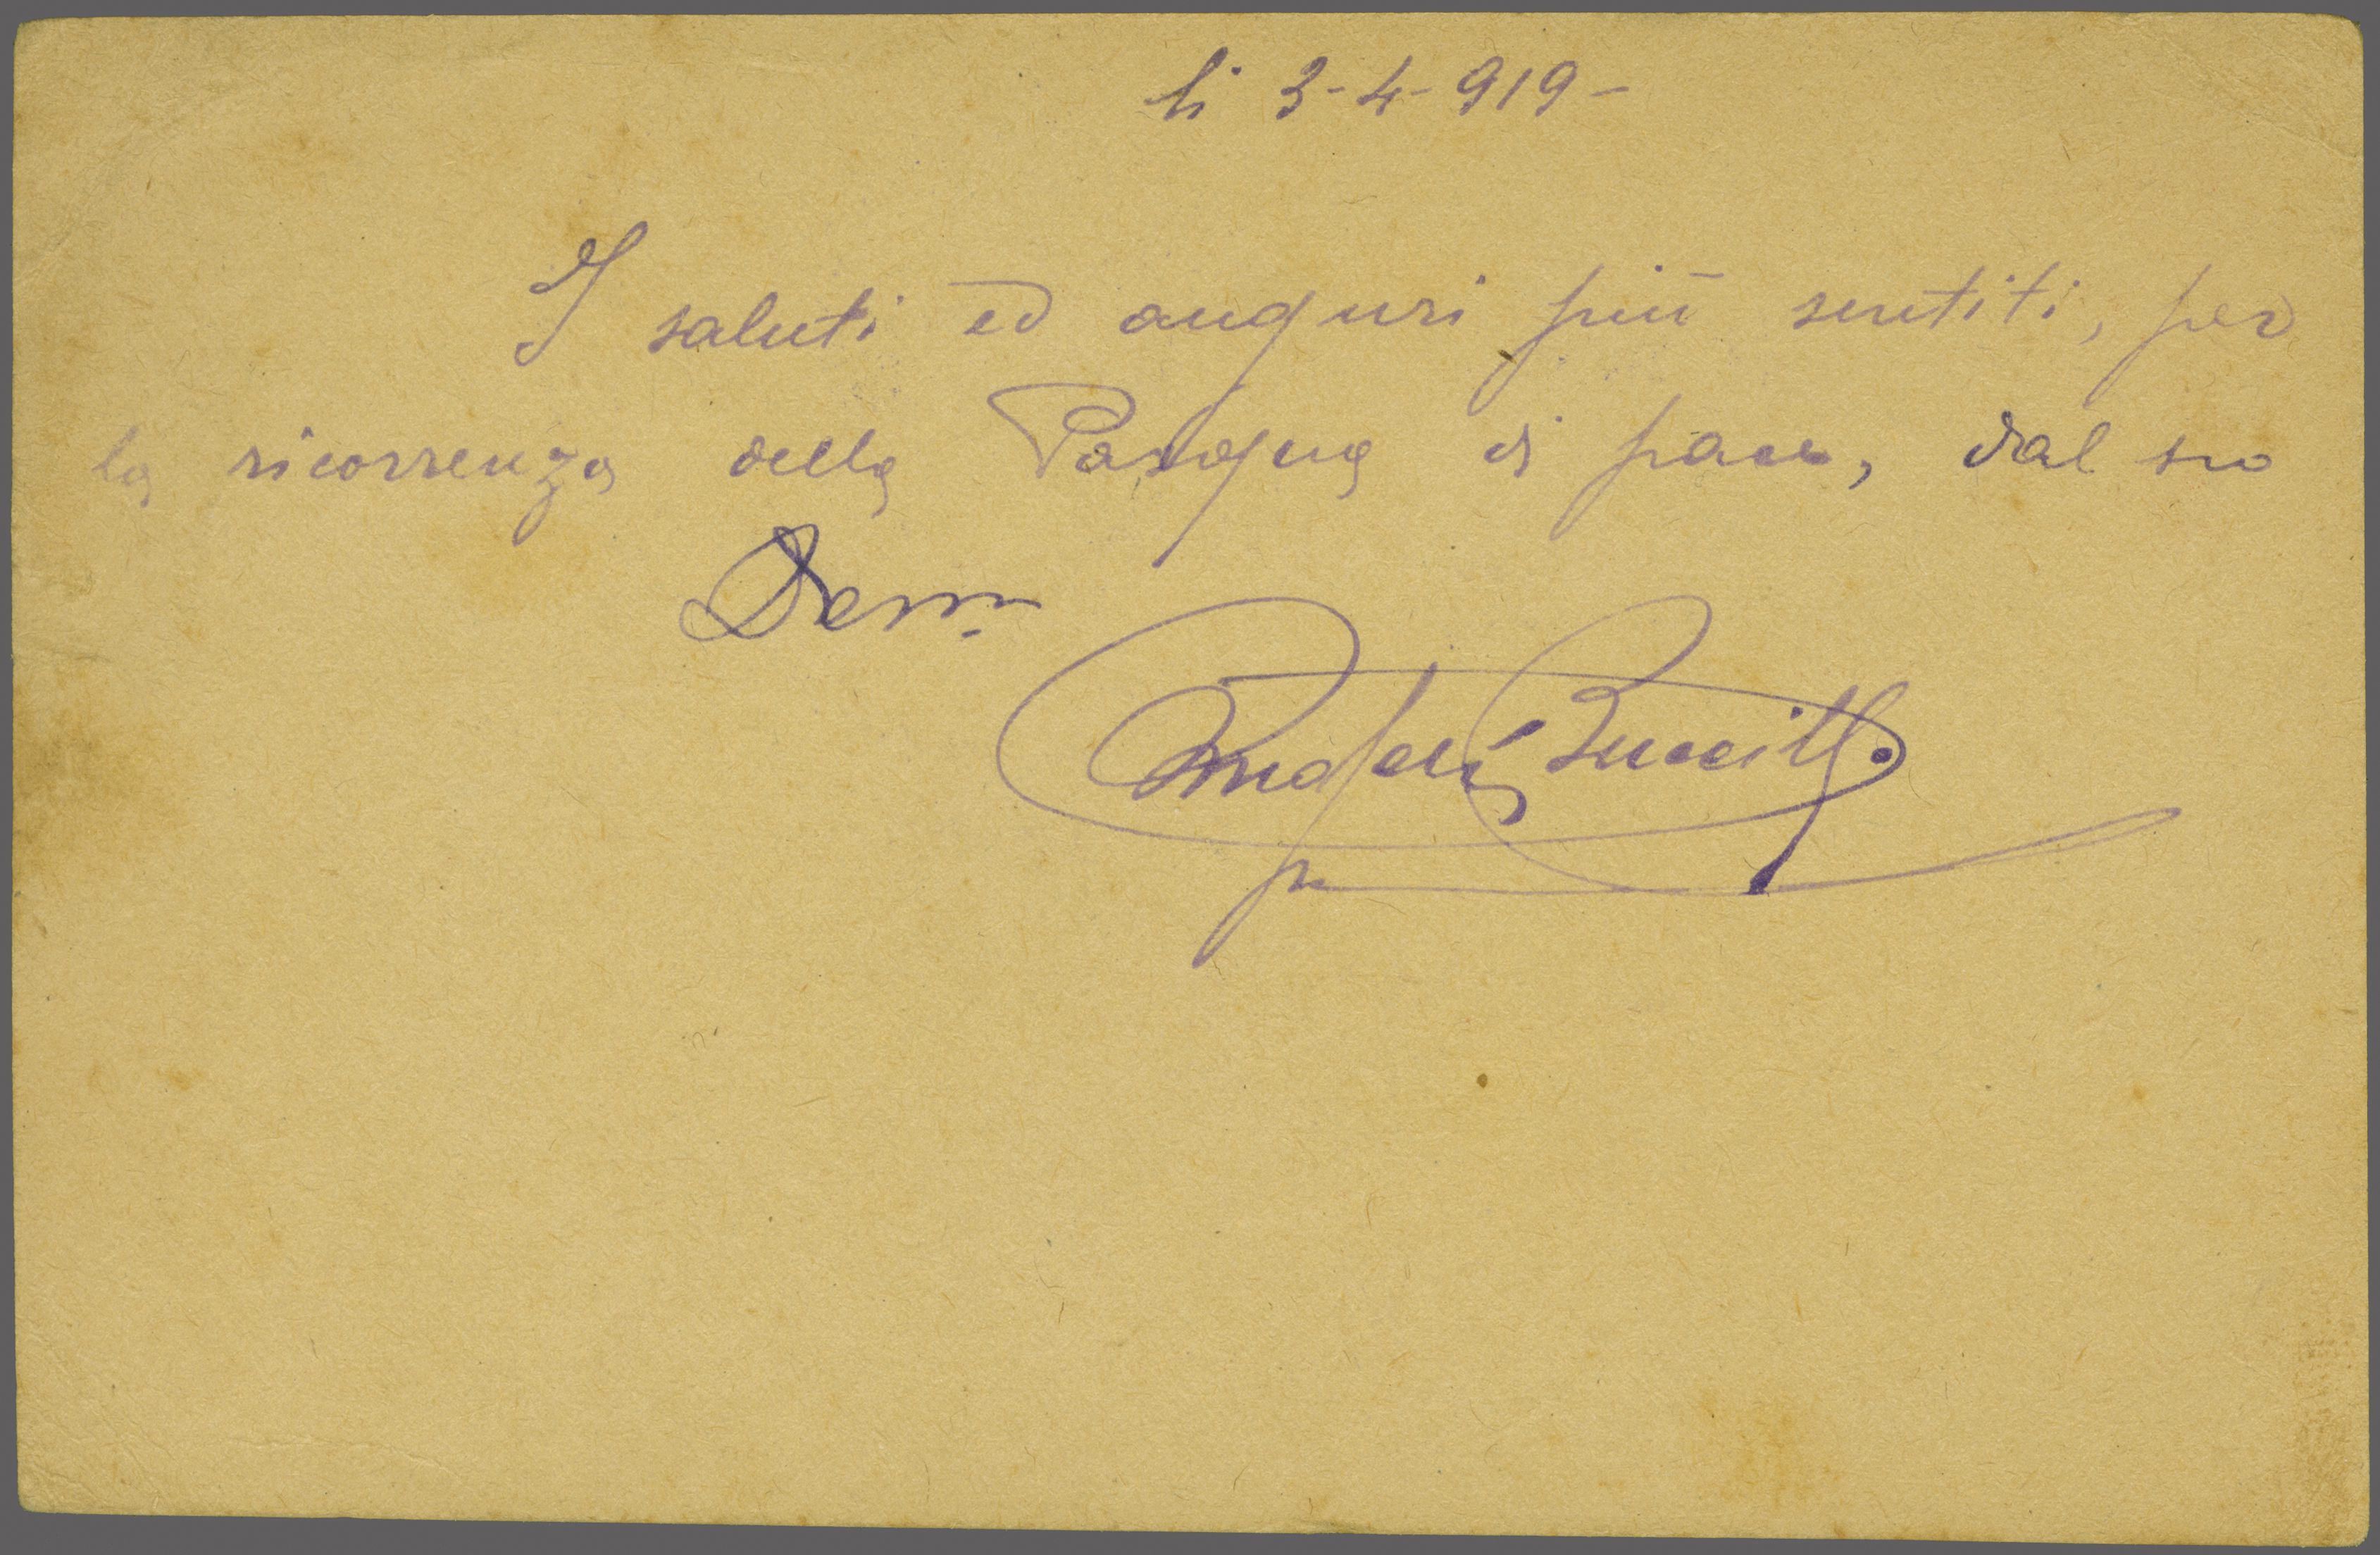 li 3-4-919-
I saluti ed auguri più sentiti, per
la ricorrenza della Pasqua di pace, dal suo
Dem.